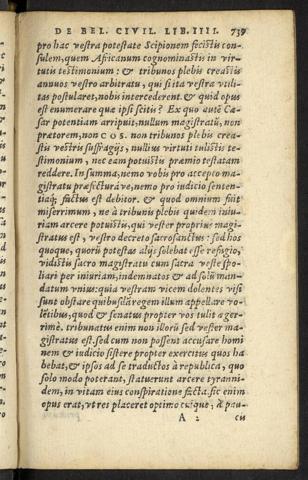 DE BEL. CIVIL. LIB. IIII. 739
pro hac vestra potestate Scipionem fecistis con-
sulem, quem Africanum cognominastis in vir-
tutis testimonium: & tribunos plebis creastis
annuos vestro arbitratu, qui si ita vestra vtili-
tas postularet, nobis intercederent. & quid opus
est enumerare qua ipsi scitis? Ex quo autē Cæ-
sar potentiam arripuit, nullum magistratũ, non
prætorem, non COS. non tribunos plebis crea-
stis vestris suffragijs, nullius virtuti tulistis te-
stimonium, nec eam potuistis præmio testatam
reddere. In summa, nemo vobis pro accepto ma-
gistratu præfecturáve, nemo pro iudicio senten-
tiáq; factus est debitor. & quod omnium fuit
miserrimum, ne à tribunis plebis quidem iniu-
riam arcere potuistis, qui vester proprius magi-
stratus est, vestro decreto sacrosanctus: sed hos
quoque, quorũ potestas alijs solebat esse refugio,
vidistis sacro magistratu cum sacra veste spo-
liari per iniuriam, indemnatos & ad solũ man-
datum vnius: quia vestram vicem dolentes visi
sunt obstare quibusdā regem illum appellare vo-
lētibus, quod & senatus propter vos tulit ager-
rimè. tribunatus enim non illorũ sed vester ma-
gistratus est. sed cum non possent accusare homi
nem & iudicio sistere propter exercitus quos ha
bebat, & ipsos ad se traductos à republica, quo
solo modo poterant, statuerunt arcere tyranni-
dem, in vitam eius conspiratione facta. sic enim
opus erat, vt res placeret optimo cuique, à pau-
A 2 cis